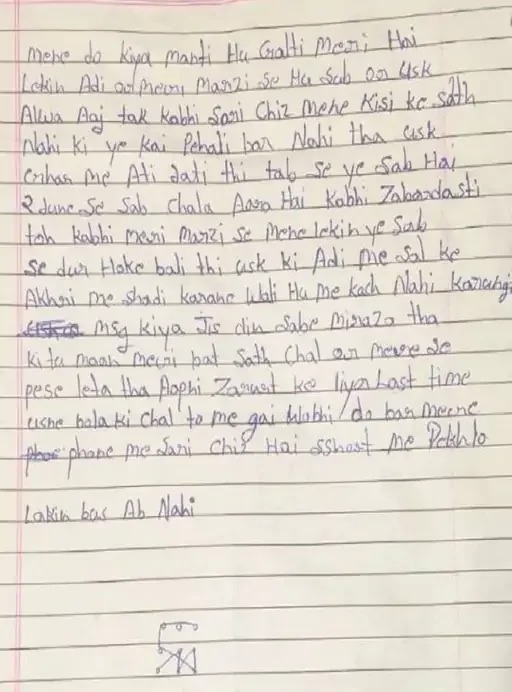 mene do kiya manti Hu Galti Meri Hai
Lekin Adi or meri Marzi se Hu Sab or Usk
Alwa Aaj tak kabhi Sari Chiz Mene Kisi ke sath
Nahi ki ye kai Pehali bar Nahi tha usk
Ghar me Ati Jati thi tab se ye Sab Hai
2 June se Sab Chala Aara Hai kabhi Zabardasti
toh kabhi meri Marzi se Mene lekin ye Sab
se dur Hoke bali thi usk ki Adi me Sal ke
Akhri me shadi karane Wali Hu me kach Nahi karungi
msg kiya Jis din Sabe tha
ki tu maan meri bat Sath Chal or mere se
pese leta tha Apphi Zarurat ke liya Last time
usne bola ki Chal to me gai Wobhi do bar meene
phone me Sari Chiz Hai sshost me Dekhlo
Lakin bas Ab Nahi